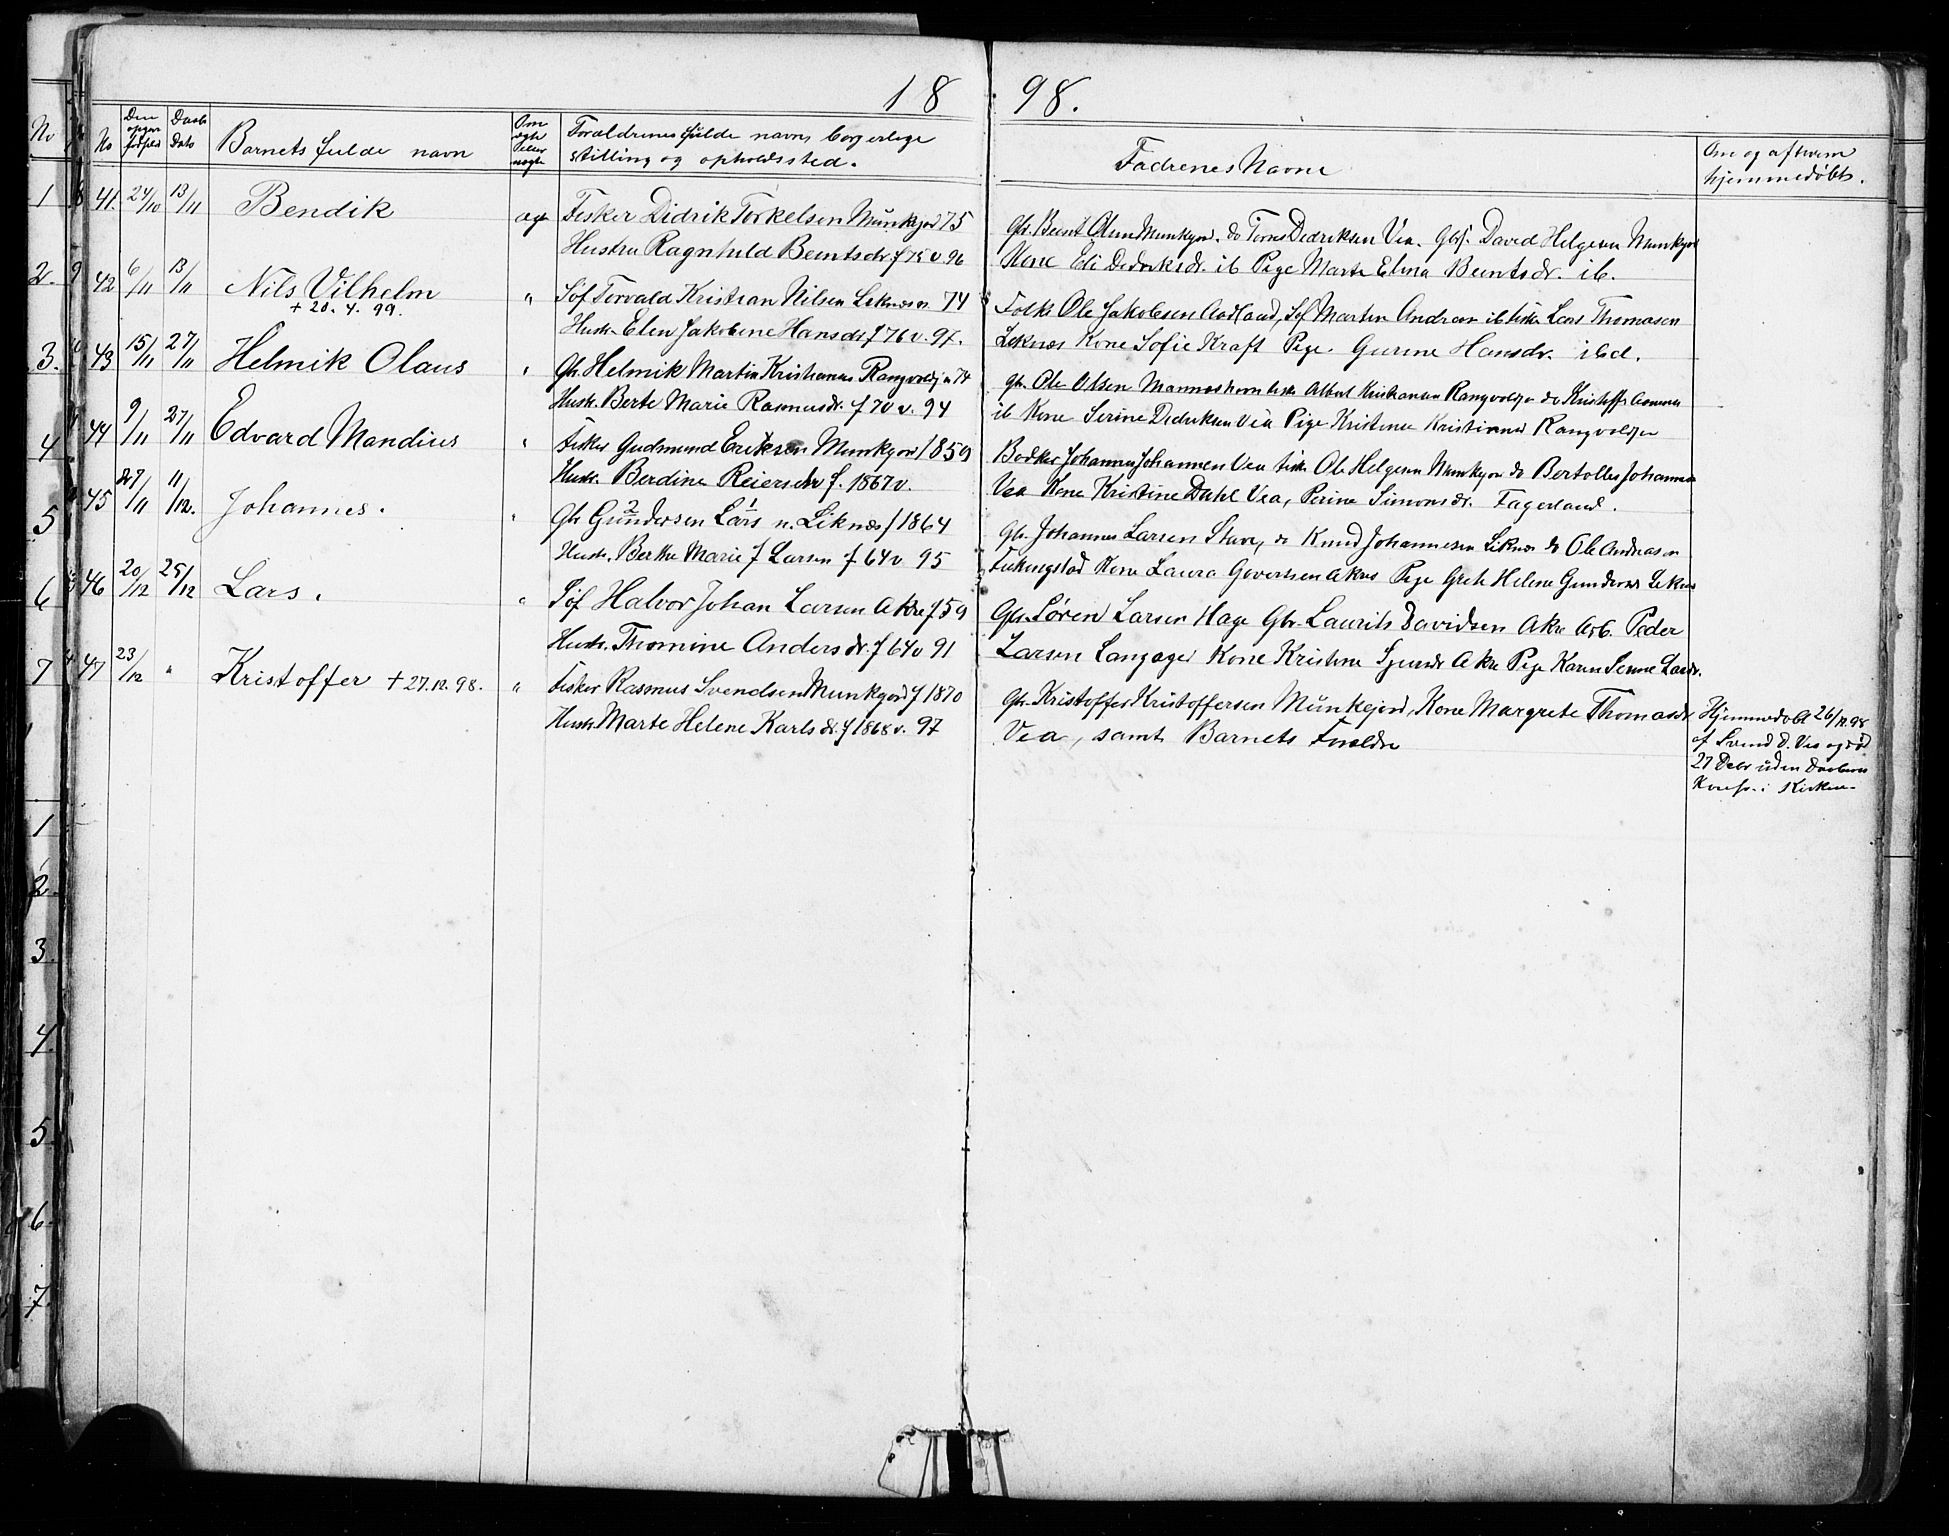 18 98.
No
Den opgiv. fødsels Daabs Dato Barnets fulde navn Om ægte eller uægte Forældrenes fulde navn, borgerlige
stilling og opholdssted.
Fadrenes Navne
Om og af hvem
hjemmedøbt.
41. 24/10 13/11 Bendik ægt Fisker Didrik Torkelsen Munkejord 75
Hustru Ragnhild Berntsdr f 75 v. 96
Gbr. Bernt Olsen Munkejord. do Tørres Dedriksen Vea. Gbsf. David Helgesen Munkejord
Kone Eli Dedriksdr. ib Pige Marta Elina Berntsdr. ib.
42 6/11 13/11 Nils Vilhelm " Søf Torvald Kristian Nilsen Leknæs 74
+ 20. 4. 99.
Hustr. Elen Jakobine Hansdr f 76 v. 97.
Ole Jakobsen Aadland, Søf Martin Andreas ib fisk Lars Thomasen
Leknæs Kone Sofie Kraft Pige Gurine Hansdr. ibd.
43 15/11 27/11 Helmik Olaus " Gbr. Helmik Martin Kristiansen 74
Hustr. Berte Marie Rasmusdr. f 70 v. 94
gbr. Ole Olsen fisk Albert Kristiansen do Kristoffer
ib Kone Serine Dedriksen Vea Pige Kristense
44 9/11 27/11 Edvard Mandius " Fisker Gudmund Eriksen Munkejord 1859
Hustr. Berdine Reiersdr f. 1867 v.
Bødker Johannes Johannesen Vea fisk Ole Helgesen Munkejord do
Vea Kone Kristine Dahl Vea, Perine Simonsdr. Fagerland.
45 27/11 11/12. Johannes. " 2 1
Gbr Gundersen Lars n. Liknæs f 1864
Hustr. Berthe Marie J Larsen f 64 v 95
Gbr. Johannes Larsen Stave, do Knud Johannesen Liknæs do Ole Andreasen
Kone Laura Govertsen Akre Pige Grete Helene Gundersen
46 20/12 25/12 Lars. " Søf Halvor Johan Larsen Akre f 59
Hustr. Thomine Andersdr. f 64 v 91
Gbr. Søren Larsen Hage Gbr. Laurits Davidsen Akre Arb. Peder
Larsen Langager Kone Kristine Akre Pige Karen
47 23/12 " Kristoffer + 27.12.98. " Fisker Rasmus Svendsen Munkejord f 1870
Hustr. Marte Helene Karlsdr. f 1868 v. 97
Gbr. Kristoffer Kristoffersen Munkejord, Kone Margrete Thomasdr.
Vea, samt Barnets Foreldre
Hjemmedøbt 26/12.98
af Svend D. Vea og død
27 Debr uden Daabens
i Kirken.
No
1
2.
3.
4
5
6
7
1
2.
3.
4.
5.
6.
7.